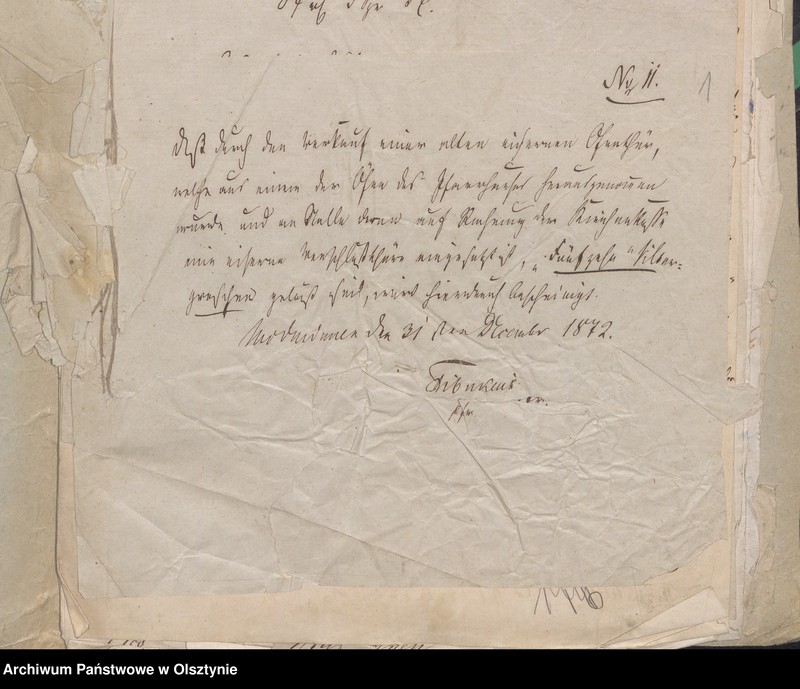 No 11.
1
daß durch den Verkauf einer alten eisernen Ofenthür,
welche aus einem der Öfen des Pfarrhauses herausgenommen
wurde und an Stelle deren auf Rechnung der Kirchenkasse
eine eiserne Verschlußthüre eingesetzt ist, „Fünfzehn“ Silber-
groschen gelöst sind, wird hierdurch bescheinigt.
den 31 ten December 1872.
Pfr
Archiwum Państwowe w Olsztynie